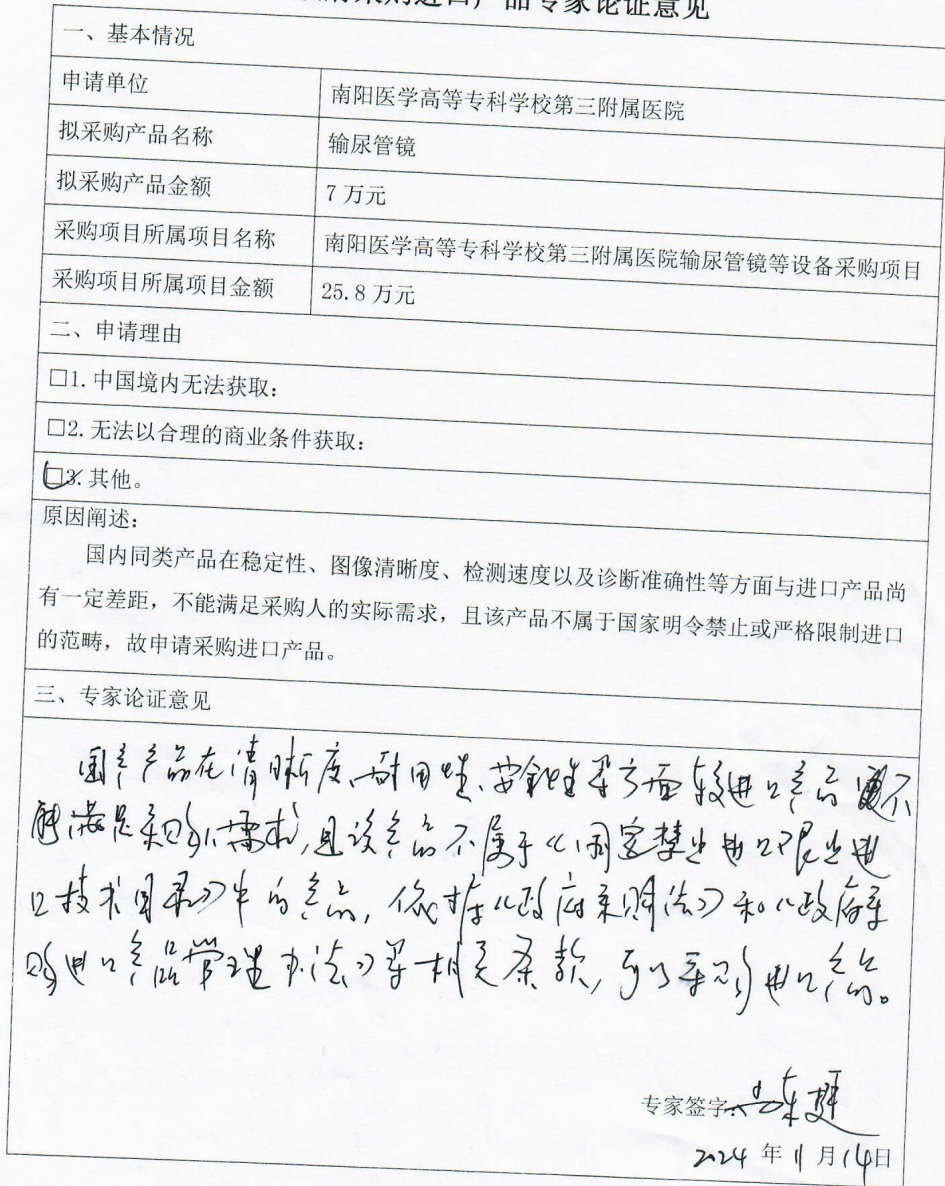 采购进口产品专家论证意见
一、基本情况
申请单位
南阳医学高等专科学校第三附属医院
拟采购产品名称
输尿管镜
拟采购产品金额
7 万元
采购项目所属项目名称
南阳医学高等专科学校第三附属医院输尿管镜等设备采购项目
采购项目所属项目金额
25.8 万元
二、申请理由
□1. 中国境内无法获取：
□2. 无法以合理的商业条件获取：
□3. 其他。
原因阐述：
国内同类产品在稳定性、图像清晰度、检测速度以及诊断准确性等方面与进口产品尚
有一定差距，不能满足采购人的实际需求，且该产品不属于国家明令禁止或严格限制进口
的范畴，故申请采购进口产品。
三、专家论证意见
国产产品在清晰度、耐用性、安全性等方面较进口产品 不
能满足采购需求，且该产品不属于《国家禁止进口限止进
口技术目录》中的产品，依据《政府采购法》和《政府采
购进口产品管理办法》等相关条款，可以采购进口产品。
专家签字：
2024 年 11 月 14 日